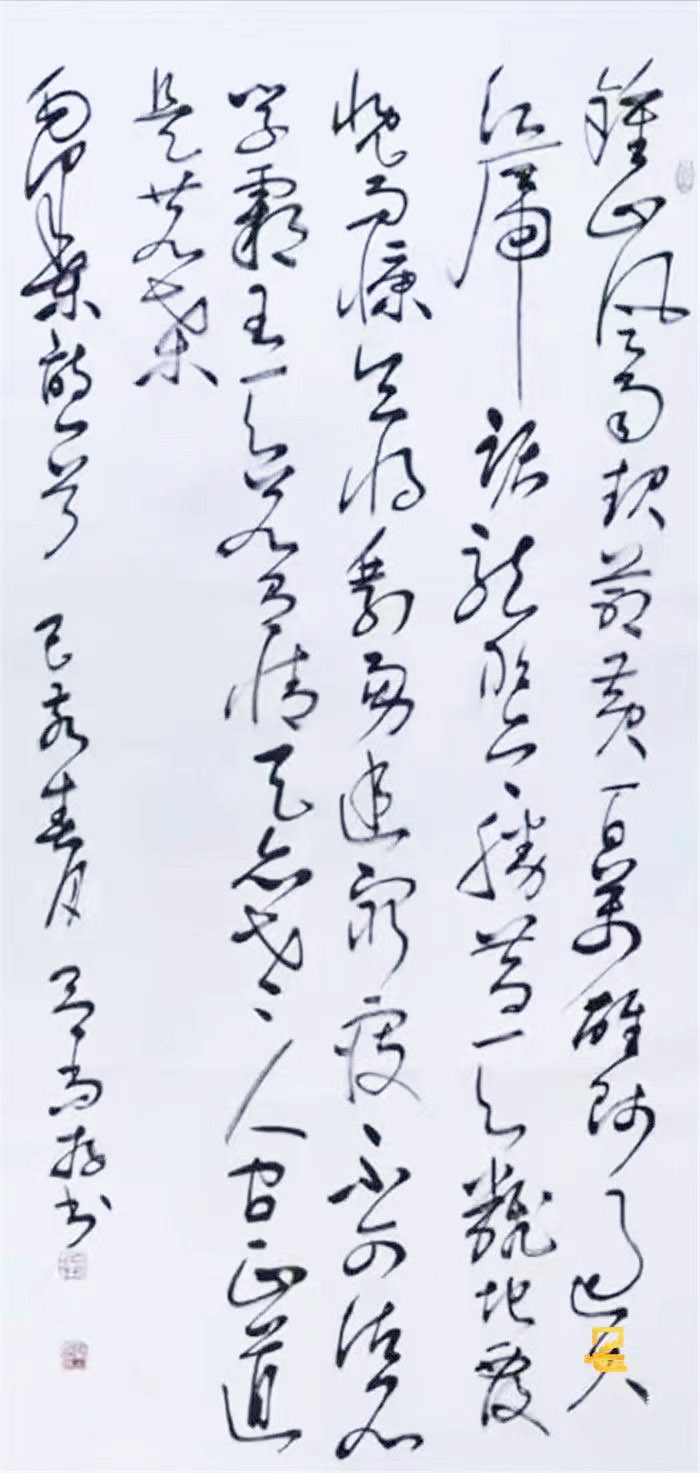 鍾山風雨起蒼黃百萬雄師過大
江虎踞龍盤今勝昔天翻地覆
慨而慷宜將剩勇追窮寇不可沽名
學霸王天若有情天亦老人間正道
是滄桑
詩一首 己亥春月 書